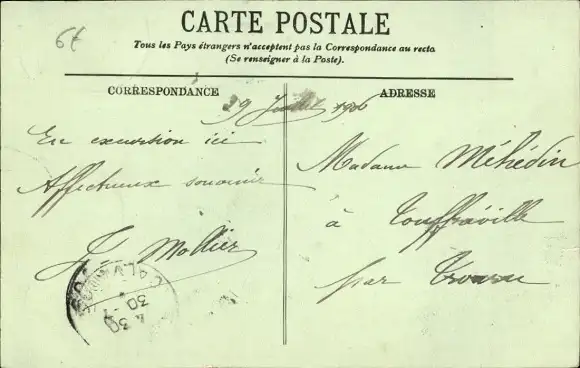 6f
CARTE POSTALE
Tous les Pays étrangers n'acceptent pas la Correspondance au recto
(Se renseigner à la Poste).
CORRESPONDANCE
ADRESSE
29 Juillet 1906
En excursion ici
Affectueux souvenir
J. Mollier
Madame Méhédin
à Touffréville
par Troarn
CALVADOS
4 30
30 -7